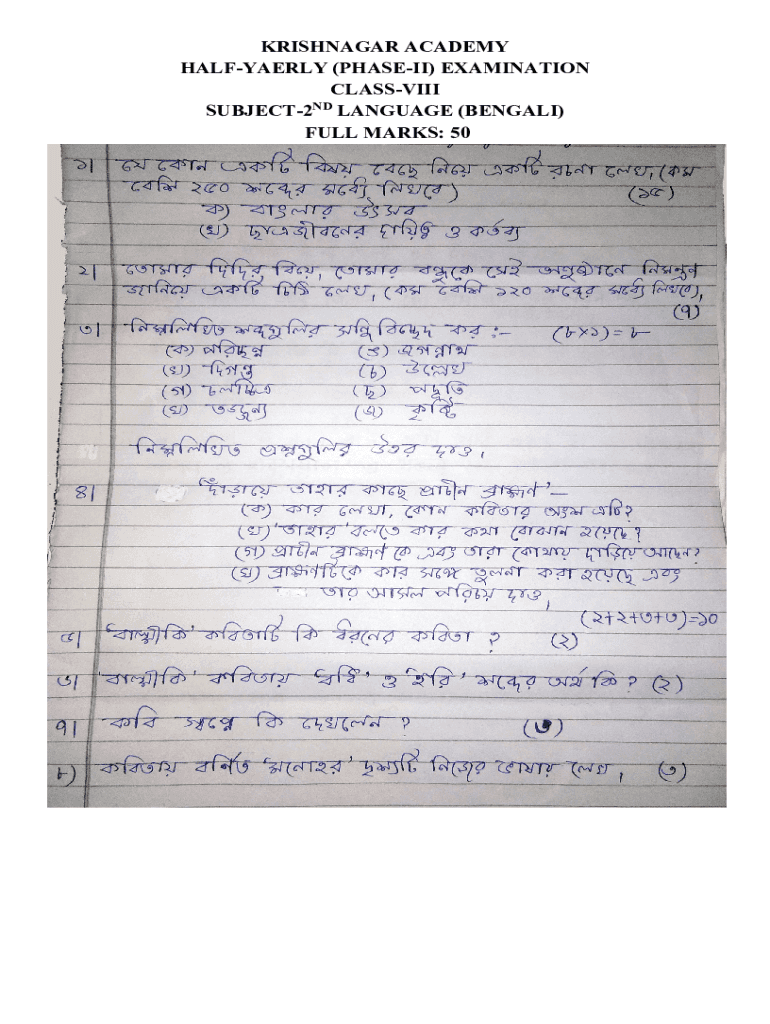 KRISHNAGAR ACADEMY
HALF-YAERLY (PHASE-II) EXAMINATION
CLASS-VIII
SUBJECT-2ND LANGUAGE (BENGALI)
FULL MARKS: 50
১| যে কোন একটি বিষয় বেছে নিয়ে একটি রচনা লেখ, (কম
বেশি ২৫০ শব্দের মধ্যে লিখবে) (১৫)
ক) বাংলার উৎসব
(খ) ছাত্রজীবনের দায়িত্ব ও কর্তব্য
২| তোমার দিদির বিয়ে, তোমার বন্ধুকে সেই অনুষ্ঠানে নিমন্ত্রণ
জানিয়ে একটি চিঠি লেখ, (কম বেশি ১২০ শব্দের মধ্যে লিখবে),
(৭)
৩| নিম্নলিখিত শব্দগুলির সন্ধি বিচ্ছেদ কর :- (৮×১)=৮
(ক) পরিচ্ছন্ন (ঙ) জগন্নাথ
(খ) দিগন্ত (চ) উল্লেখ
(গ) চলচ্চিত্র (ছ) পদ্ধতি
(ঘ) তজ্জন্য (জ) কৃষ্টি
নিম্নলিখিত প্রশ্নগুলির উত্তর দাও।
৪| 'দাঁড়ায়ে তাহার কাছে প্রাচীন ব্রাহ্মণ'—
(ক) কার লেখা, কোন কবিতার অংশ এটি?
(খ) 'তাহার' বলতে কার কথা বোঝান হয়েছে?
(গ) প্রাচীন ব্রাহ্মণ কে এবং তারা কোথায় দাড়িয়ে আছেন?
(ঘ) ব্রাহ্মণটিকে কার সঙ্গে তুলনা করা হয়েছে এবং
তার আসল পরিচয় দাও,
(২+২+৩+৩)=১০
৫| 'বাল্মীকি' কবিতাটি কি ধরনের কবিতা ? (২)
৬| 'বাল্মীকি' কবিতায় 'বর্ষি' ও 'হরি' শব্দের অর্থ কি? (২)
৭| কবি স্বপ্নে কি দেখলেন ? (৩)
৮) কবিতায় বর্ণিত 'মনোহর' দৃশ্যটি নিজের ভাষায় লেখ, (৩)